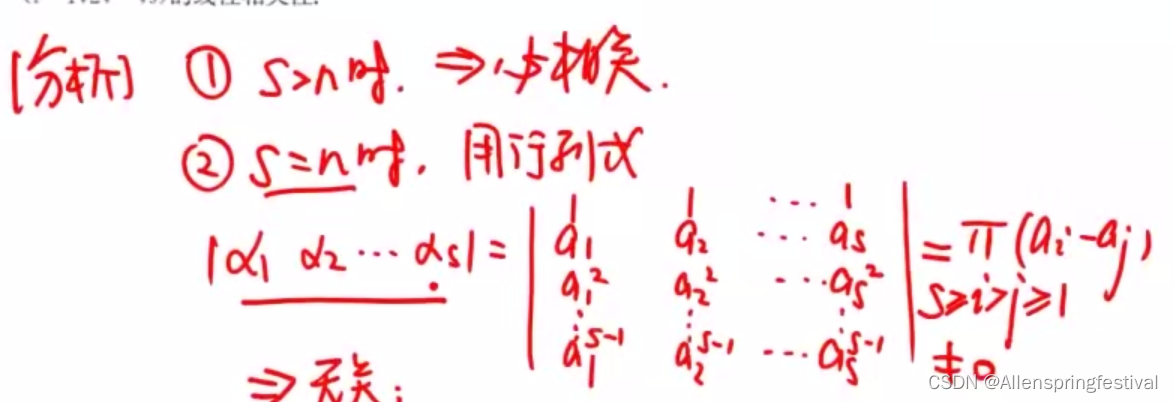 的线性相关性.
[分析] ① s>n时. ⇒必相关.
② s=n时. 用行列式
|α₁ α₂ … αs| = | 1 1 … 1
a₁ a₂ … as
a₁² a₂² … as²
⋮ ⋮ ⋮
a₁^{s-1} a₂^{s-1} … as^{s-1} | = π(ai-aj)
s≥i>j≥1
≠0
⇒ 无关;
CSDN @Allenspringfestival